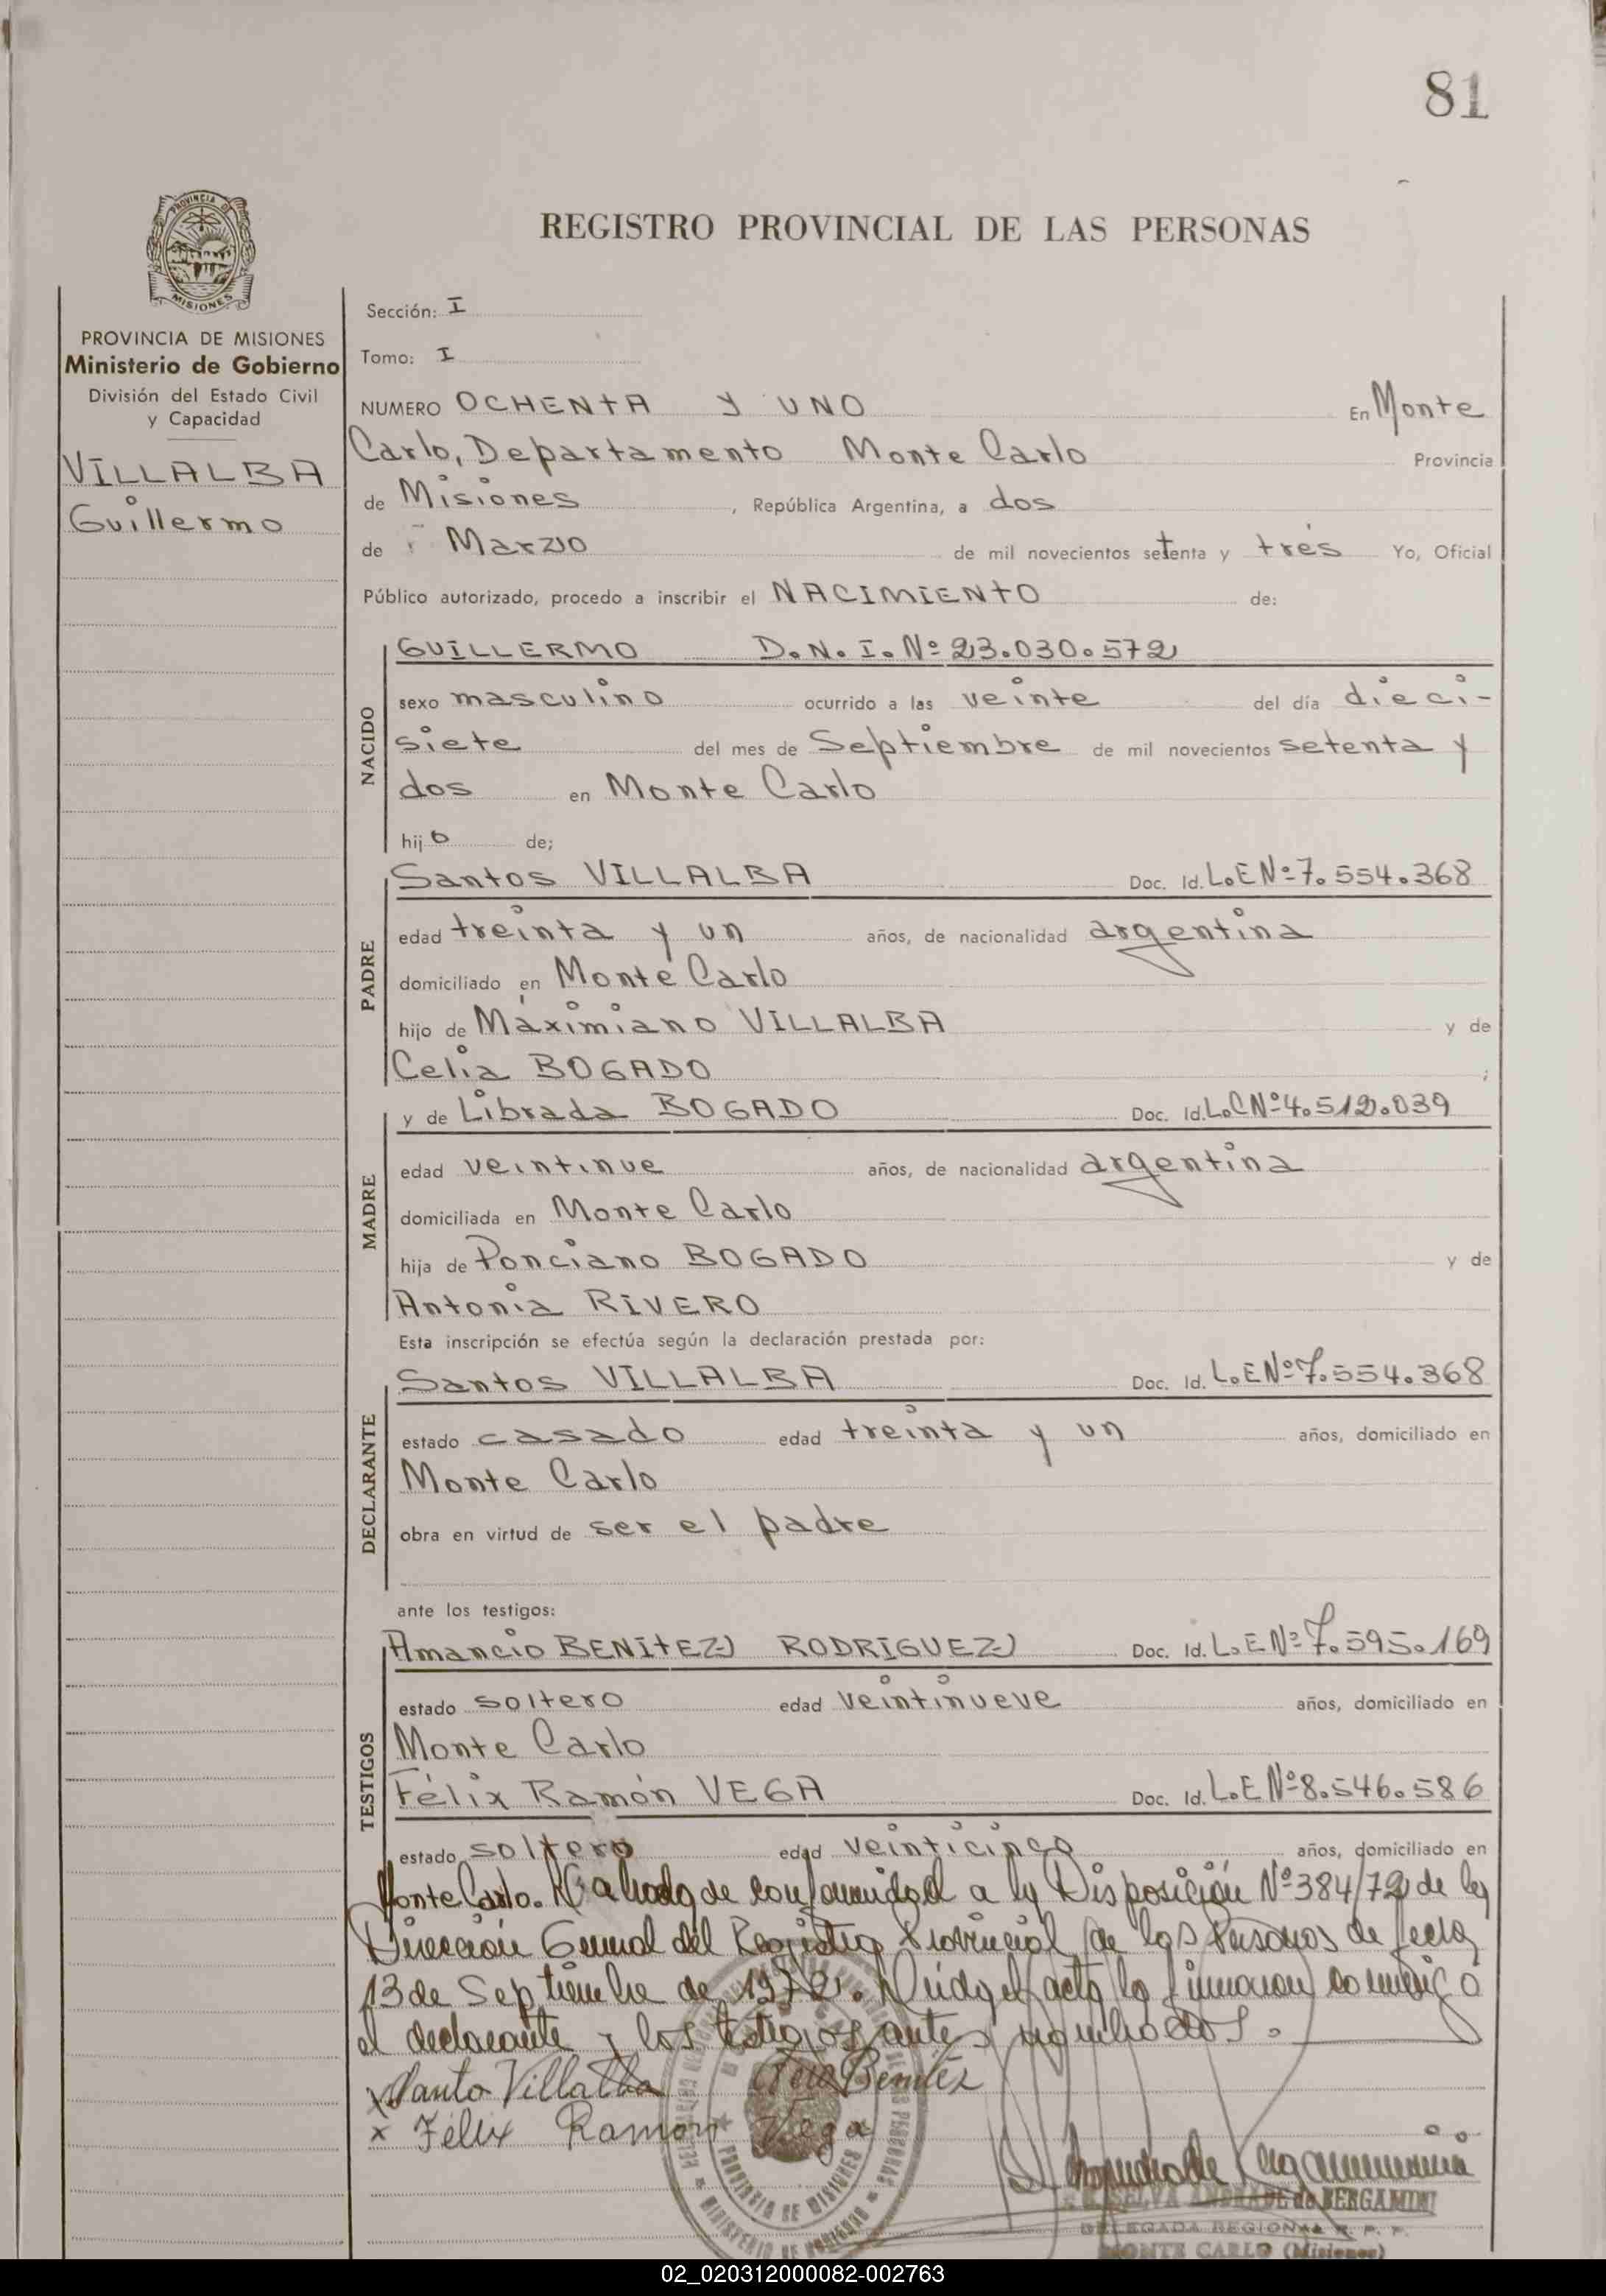 81
PROVINCIA DE
MISIONES
REGISTRO PROVINCIAL DE LAS PERSONAS
PROVINCIA DE MISIONES
Ministerio de Gobierno
División del Estado Civil
y Capacidad
VILLALBA
Guillermo
Sección: I
Tomo: I
NUMERO OCHENTA Y UNO En Monte
Carlo, Departamento Monte Carlo Provincia
de Misiones, República Argentina, a dos
de Marzo de mil novecientos setenta y tres Yo, Oficial
Público autorizado, procedo a inscribir el NACIMIENTO de:
NACIDO
GUILLERMO D.N.I. Nº 23.030.572
sexo masculino ocurrido a las veinte del día dieci-
siete del mes de Septiembre de mil novecientos setenta y
dos en Monte Carlo
hijo de;
PADRE
Santos VILLALBA Doc. Id. L.E Nº 7.554.368
edad treinta y un años, de nacionalidad argentina
domiciliado en Monte Carlo
hijo de Máximiano VILLALBA y de
Celia BOGADO ;
MADRE
y de Librada BOGADO Doc. Id. L.C Nº 4.512.039
edad veintinue años, de nacionalidad argentina
domiciliada en Monte Carlo
hija de Ponciano BOGADO y de
Antonia RIVERO
Esta inscripción se efectúa según la declaración prestada por:
DECLARANTE
Santos VILLALBA Doc. Id. L.E Nº 7.554.368
estado casado edad treinta y un años, domiciliado en
Monte Carlo
obra en virtud de ser el padre
ante los testigos:
TESTIGOS
Amancio BENITEZ RODRIGUEZ Doc. Id. L.E Nº 7.595.169
estado soltero edad veintinueve años, domiciliado en
Monte Carlo
Félix Ramón VEGA Doc. Id. L.E Nº 8.546.586
estado soltero edad veinticinco años, domiciliado en
Monte Carlo. de conformidad a la Disposición Nº 384/72 de la
Dirección General del Registro Provincial de las Personas de fecha
13 de Septiembre de 1972. Leida el acta la firmaron conmigo
el declarante y los testigos antes
x Santo Villalba Benitez
x Félix Ramon Vega
PROVINCIA DE MISIONES
MINISTERIO DE GOBIERNO
SELVA ANDRADE de BERGAMINI
DELEGADA REGIONAL R. P. P.
MONTE CARLO (Misiones)
02_020312000082-002763